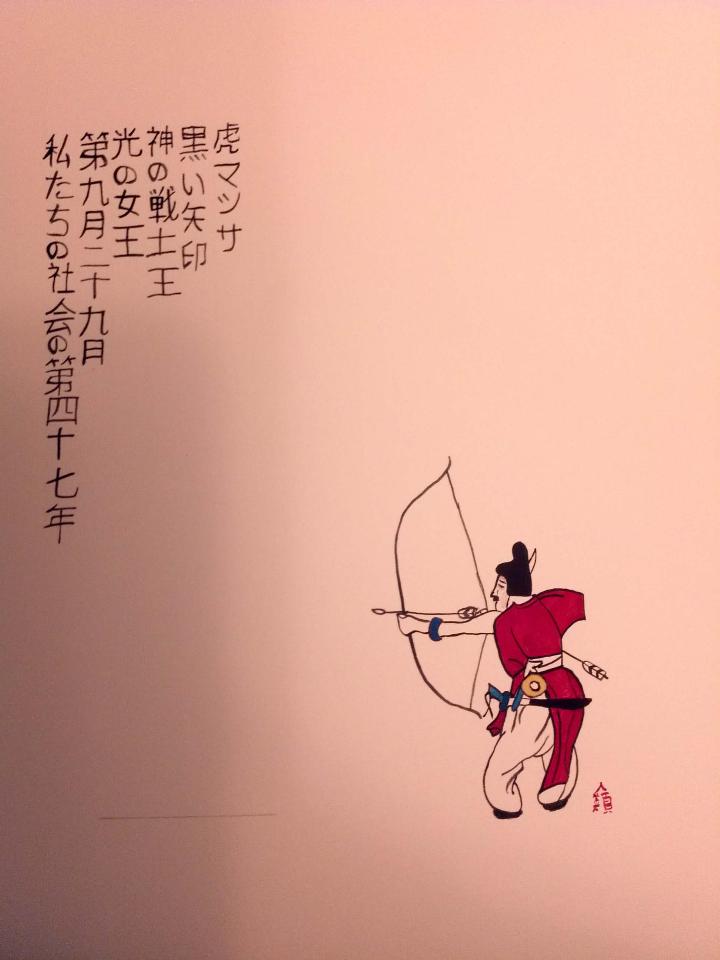 虎マツサ
黒い矢印
神の戦士王
光の女王
第九月二十九月
私たちの社会の第四十七年